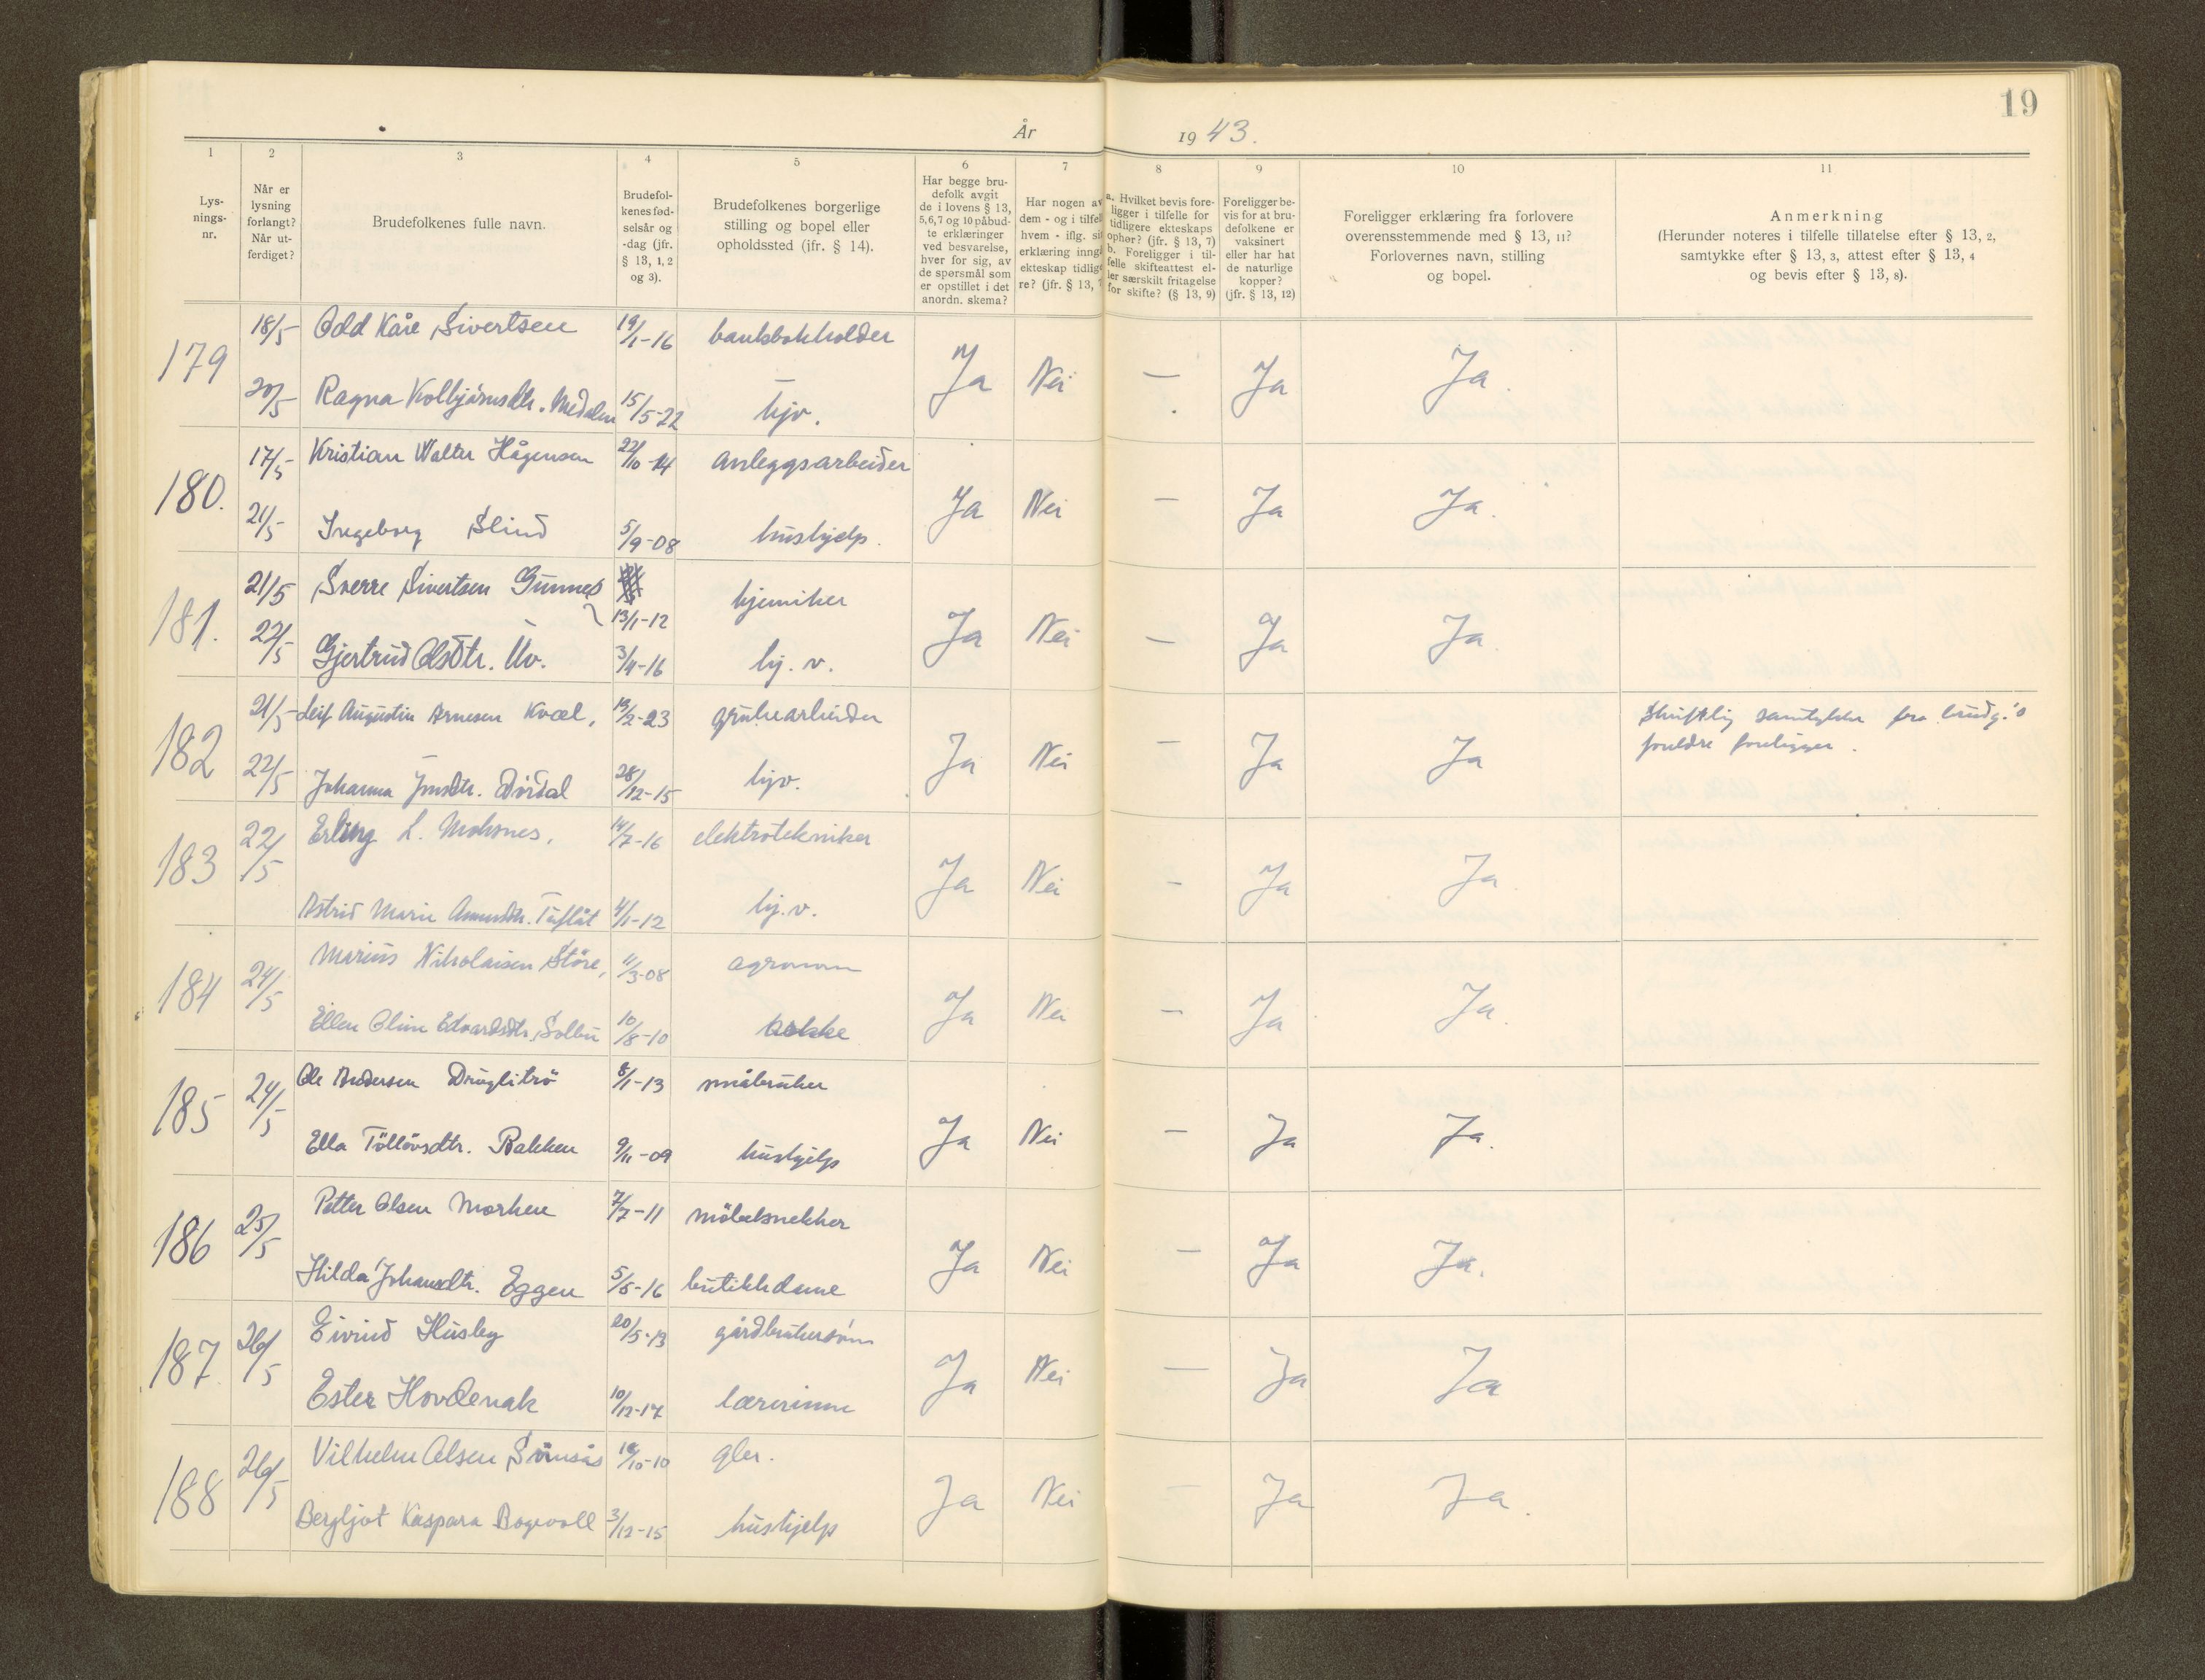 19
År 1943.
1
2
3
4
5
6
7
8
9
10
11
Lys-
nings-
nr.
Når er
lysning
forlangt?
Når ut-
ferdiget?
Brudefolkenes fulle navn.
Brudefol-
kenes fød-
selsår og
-dag (jfr.
§ 13, 1, 2
og 3).
Brudefolkenes borgerlige
stilling og bopel eller
opholdssted (jfr. § 14).
Har begge bru-
defolk avgit
de i lovens § 13,
5, 6, 7 og 10 påbud-
te erklæringer
ved besvarelse,
hver for sig, av
de spørsmål som
er opstillet i det
anordn. skema?
Har nogen av
dem - og i tilfel
hvem - iflg. sit
erklæring inngå
ekteskap tidlige
re? (jfr. § 13, 7
a. Hvilket bevis fore-
ligger i tilfelle for
tidligere ekteskaps
ophør? (jfr. § 13, 7)
b. Foreligger i til-
felle skifteattest el-
ler særskilt fritagelse
for skifte? (§ 13, 9)
Foreligger be-
vis for at bru-
defolkene er
vaksinert
eller har hat
de naturlige
kopper?
(jfr. § 13, 12)
Foreligger erklæring fra forlovere
overensstemmende med § 13, 11?
Forlovernes navn, stilling
og bopel.
Anmerkning
(Herunder noteres i tilfelle tillatelse efter § 13, 2,
samtykke efter § 13, 3, attest efter § 13, 4
og bevis efter § 13, 8).
179 18/5 Odd Kåre Sivertsen 19/1-16 bankbokholder Ja Nei — Ja Ja.
20/5 Ragna Kolbjørnsdtr. Medalen 15/5-22 hjv.
180. 17/5 Kristian Walter Hågensen 22/10-14 anleggsarbeider Ja Nei — Ja Ja.
21/5 Ingeborg Slind 5/9-08 hushjelp.
181. 21/5 Sverre Sivertsen Gunnes 13/1-12 kjemiker Ja Nei — Ja Ja
22/5 Gjertrud Olsdtr. Uv. 3/4-16 hj. v.
182 21/5 Leif Augustin Arnesen Kvæl, 19/2-23 grubearbeider Ja Nei — Ja Ja Skriftlig samtykke fra brudg.'s
foreldre foreligger.
22/5 Johanna Jonsdtr. Dørdal 28/12-15 hjv.
183 22/5 Erling L. Moksnes, 14/7-16 elektrotekniker Ja Nei - Ja Ja
Astrid Marie Tuflåt 4/1-12 hj. v.
184 24/5 Marius Nikolaisen Støre, 11/3-08 agronom Ja Nei - Ja Ja.
Ellen Oline Edvardsdtr. Solbu 10/8-10 kokke
185 24/5 Ole Andersen Druglitrø 8/1-13 småbruker Ja Nei — Ja Ja.
Ella Tølløvsdtr. Bakken 9/11-09 hushjelp
186 25/5 Petter Olsen Morken 7/7-11 møbelsnekker Ja Nei — Ja Ja.
Hilda Johansdtr. Eggen 5/5-16 butikkdame
187 26/5 Eivind Husby 20/5-13 gårdbrukersønn Ja Nei — Ja Ja
Ester Hovdenak 10/12-17 lærerinne
188 26/5 Vilhelm Olsen 18/10-10 gbr. Ja Nei - Ja Ja.
Bergljot Kaspara Bogevoll 3/12-15 hushjelp